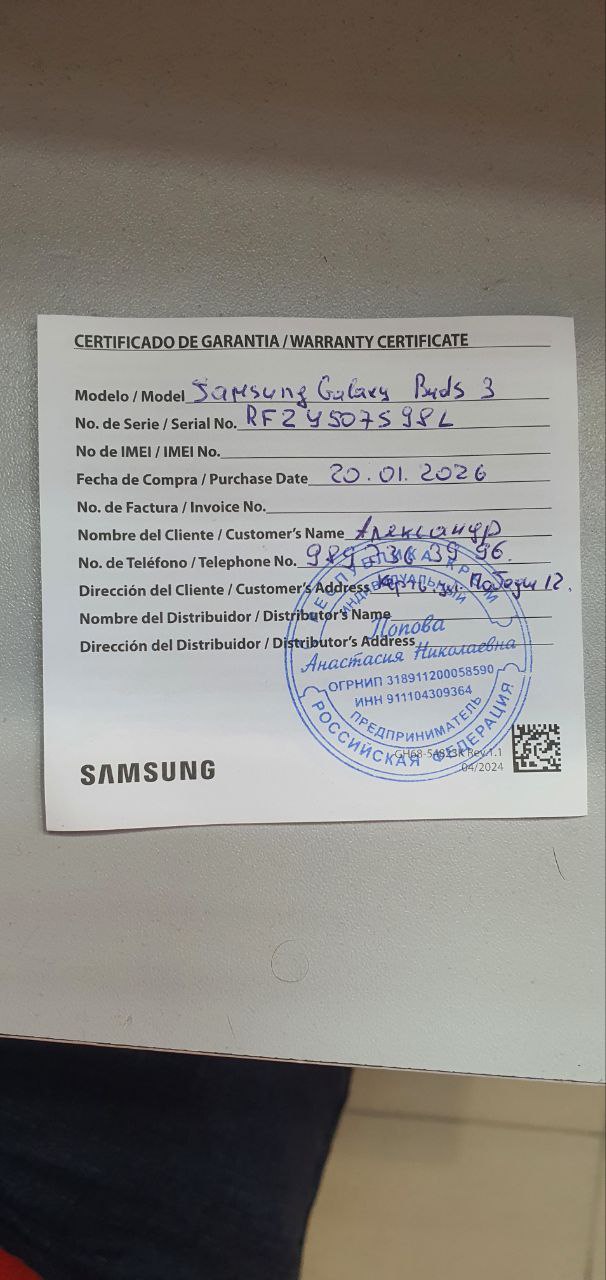 CERTIFICADO DE GARANTIA / WARRANTY CERTIFICATE
Modelo / Model Samsung Galaxy Buds 3
No. de Serie / Serial No. RFZY507S98L
No de IMEI / IMEI No.
Fecha de Compra / Purchase Date 20.01.2026
No. de Factura / Invoice No.
Nombre del Cliente / Customer's Name Александр
No. de Teléfono / Telephone No. 989 736 39 96.
Dirección del Cliente / Customer's Address ул. Победы 12.
Nombre del Distribuidor / Distributor's Name
Dirección del Distribuidor / Distributor's Address
РЕСПУБЛИКА КРЫМ
ИНДИВИДУАЛЬНЫЙ
Попова
Анастасия Николаевна
ОГРНИП 318911200058590
ИНН 911104309364
ПРЕДПРИНИМАТЕЛЬ
РОССИЙСКАЯ ФЕДЕРАЦИЯ
SAMSUNG
GH68-54823K Rev.1.1
04/2024